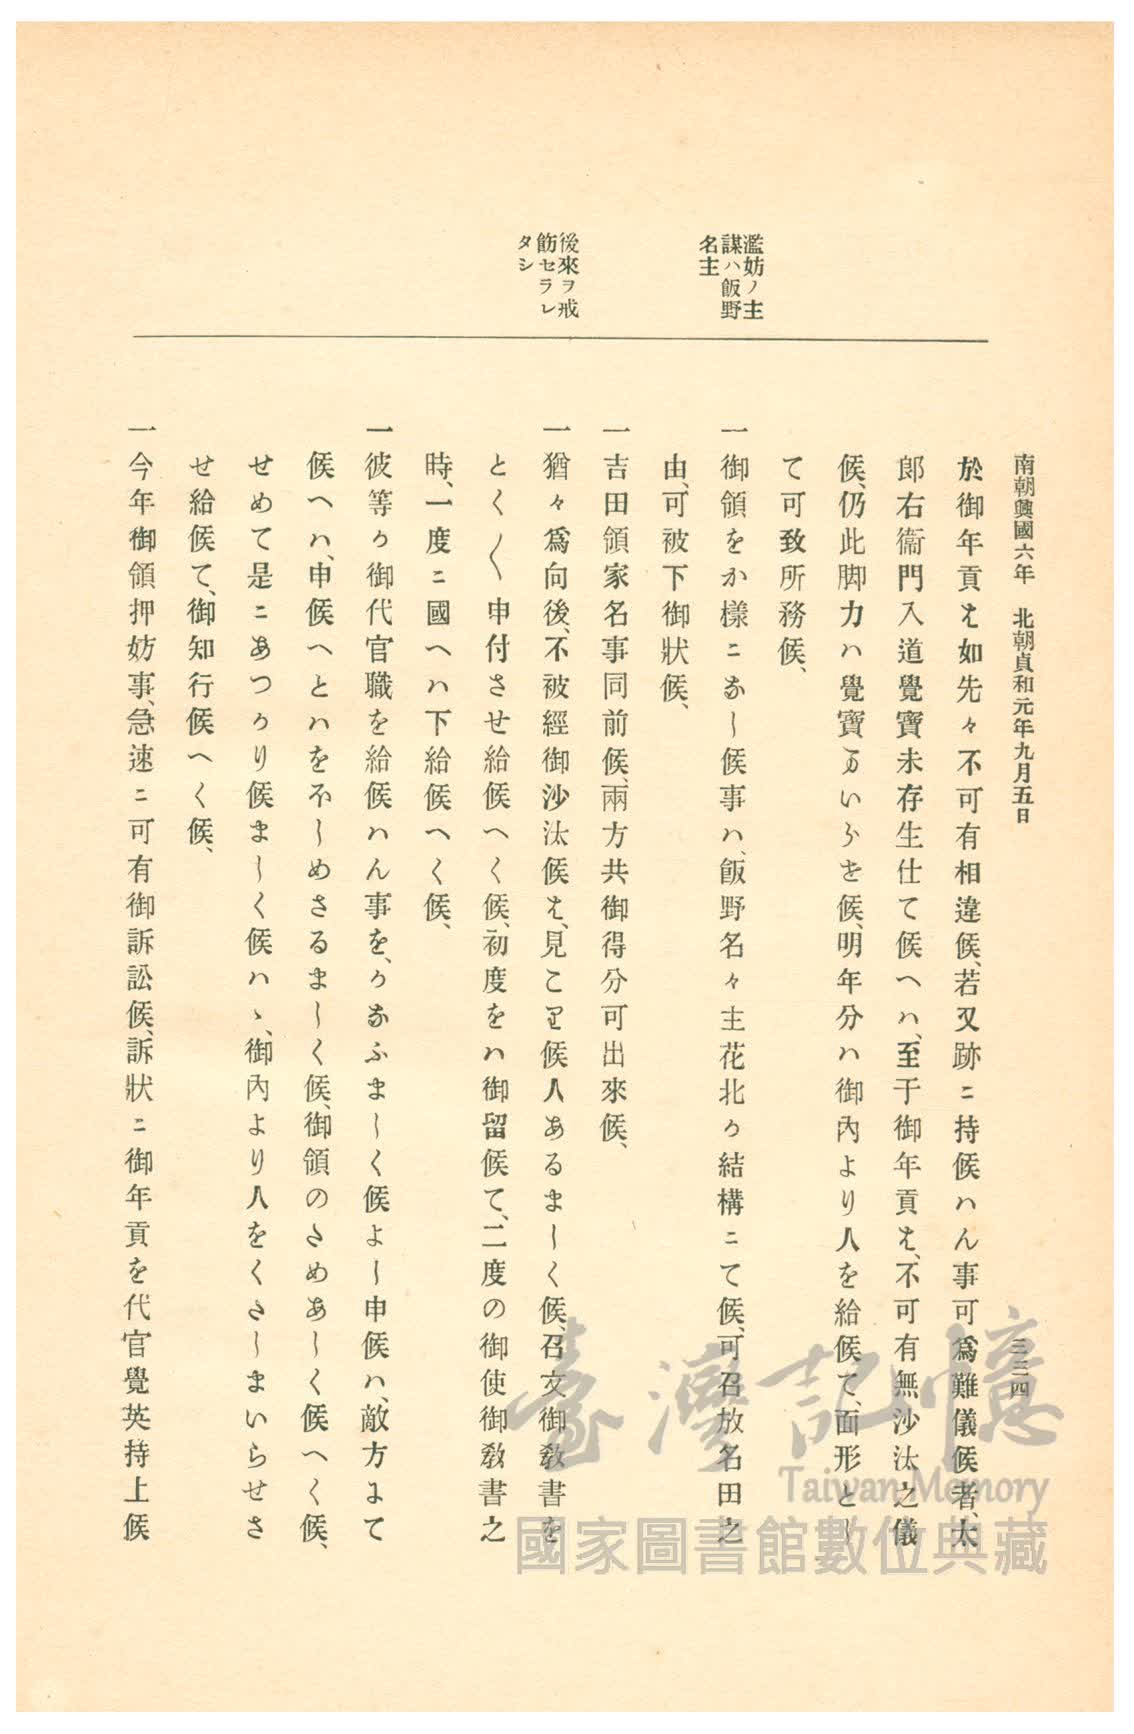 南朝興國六年　北朝貞和元年九月五日
三三四
濫妨ノ主
謀ハ飯野
名主
後來ヲ戒
飭セラレ
タシ
於御年貢〻如先々不可有相違候、若又跡ニ持候ハん事可爲難儀候者、太
郎右衞門入道覺寶未存生仕て候ヘハ、至于御年貢〻、不可有無沙汰之儀
候、仍此脚力ハ覺寶まいらせ候、明年分ハ御內より人を給候て、面形とし
て可致所務候、
一御領をか樣ニなし候事ハ、飯野名々主花北か結構ニて候、可召放名田之
由、可被下御狀候、
一吉田領家名事同前候、兩方共御得分可出來候、
一猶々爲向後、不被經御沙汰候〻、見こり候人あるましく候、召文御敎書を
とく〱申付させ給候へく候、初度をハ御留候て、二度の御使御敎書之
時、一度ニ國ヘハ下給候へく候、
一彼等か御代官職を給候ハん事を、かなふましく候よし申候ハ、敵方よて
候ヘハ、申候へとハをホしめさるましく候、御領のためあしく候へく候、
せめて是ニあつかり候ましく候ハヽ、御內より人をくたしまいらせさ
せ給候て、御知行候へく候、
一今年御領押妨事、急速ニ可有御訴訟候、訴狀ニ御年貢を代官覺英持上候
臺灣記憶
Taiwan Memory
國家圖書館數位典藏